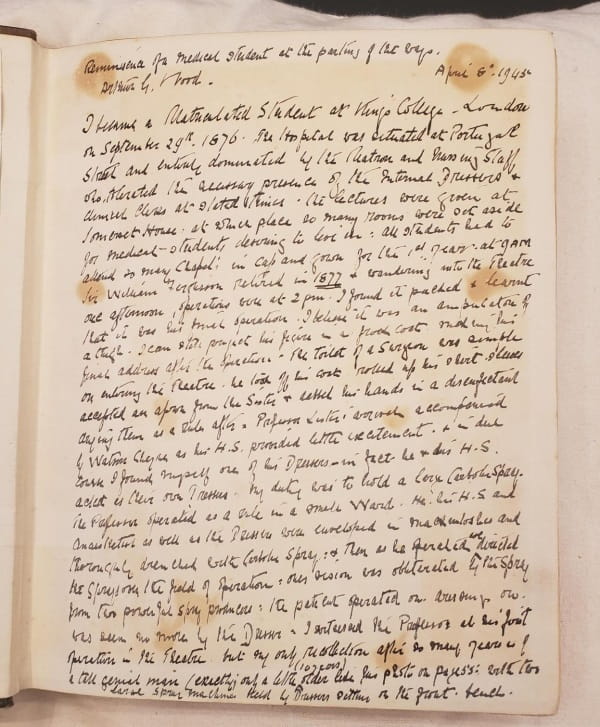 Reminiscence of a medical student at the parting of the ways.
Arthur G. Wood.
April 8th. 1945.
I became a Matriculated Student at King's College - London
on September 29th. 1876. The Hospital was situated at Portugal
Street and entirely dominated by the Matron and Nursing Staff
who tolerated the necessary presence of the Internal Dressers &
clinical Clerks at stated times. The lectures were given at
Somerset House. at which place so many rooms were set aside
for medical-students desiring to live in: all students had to
attend so many Chapels in cap and gown for the 1st years. at 9 AM
Sir William Fergusson retired in 1877 & wandering into the Theatre
one afternoon, operations were at 2 pm. I found it packed & learnt
that it was his last operation. I believe it was an amputation of
a thigh. I can still project his figure in a frock coat making his
final address after the operation. The toilet of a Surgeon was simple
on entering the Theatre. he took off his coat rolled up his shirt-sleeves
accepted an apron from the Sister & washed his hands in a disenfectant
drying them as a rule after. Professor Lister's arrival accompanied
by Watson Cheyne as his H.S. provided little excitement. & in due
course I found myself one of his Dressers - in fact he & his H.S.
acted as their own Dressers. My duty was to hold a large Carbolic Spray.
The Professor operated as a rule in a small Ward. He: his H.S and
Anaesthetist as well as the Dressers were enveloped in mackintoshes and
thoroughly drenched with Carbolic Spray: & then as he operated we directed
the Sprays over the field of operation: ones vision was obliterated by the Spray
from two powerful spray producers: the patient operated on. dressings on.
was seen no more by the Dresser. I witnessed the Professor at his first
operation in the Theatre. but my only recollection after so many years is of
a tall genial man (exactly only a little older like his photo on page 55: with two
large spray machines held by Dressers sitting on the front bench.